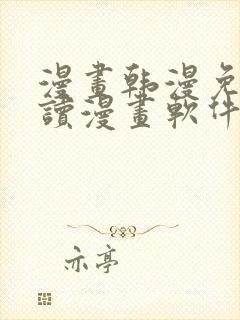 漫畫韩漫免
讀漫畫軟件
亦亭